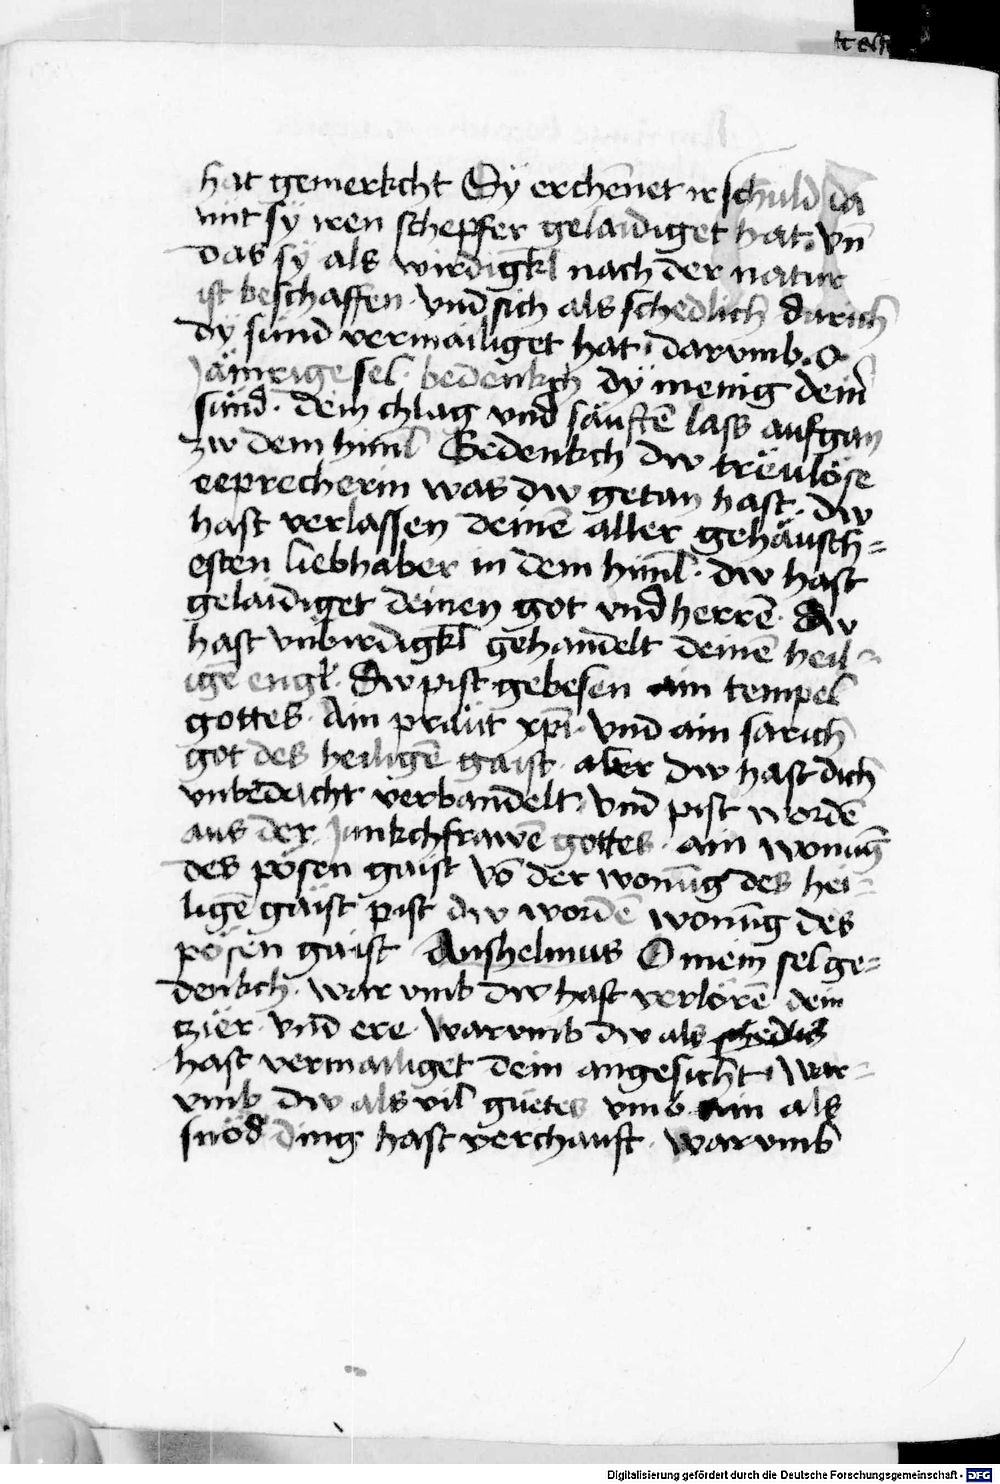 hat gemerkcht Sÿ erchēnet ir schuld da
mit sÿ iren schepfer gelaidiget hat. vn̄
das sÿ als wirdigkl nach der natur
ist beschaffen. vnd sich als schedlich durich
dÿ sünd vermailiget hat. darvmb. O
Jämrige sel. bedenkch dÿ menig dein̄
sünd. dein chlag vnd säuftē lass aufgan
zw dem himl̄ Gedenkch dw trëulöse
eeprecherin was dw getan hast. dw
hast verlassen deinē aller gehäusch=
esten liebhaber in dem himl̄. dw hast
gelaidiget deinen got vnd herrē. dw
hast vnbirdigkl gehandelt deinē heil=
igē engl. dw pist gebesen ain tempel
gottes. Ain präut xp̄i. vnd ain sarich
got des heiligē gaist. aber dw hast dich
vnbedacht verbandelt. vnd pist wordē
aus der Junkchfrawē gottes. ain wonūg
des pösen gaist vō der wonūg des hei=
ligē gäist pist dw wordē wonūg des
pösen gaist Anshelmus O mein sel ge=
denkch. war vmb dw hast verlörē dein
tziër. vnd ere. warvmb dw als
hast vermailiget dein angesicht. war=
vmb dw als vil güetes vmb ain als
snöd ding hast verchauft. warvmb
tt
Digitalisierung gefördert durch die Deutsche Forschungsgemeinschaft - DFG